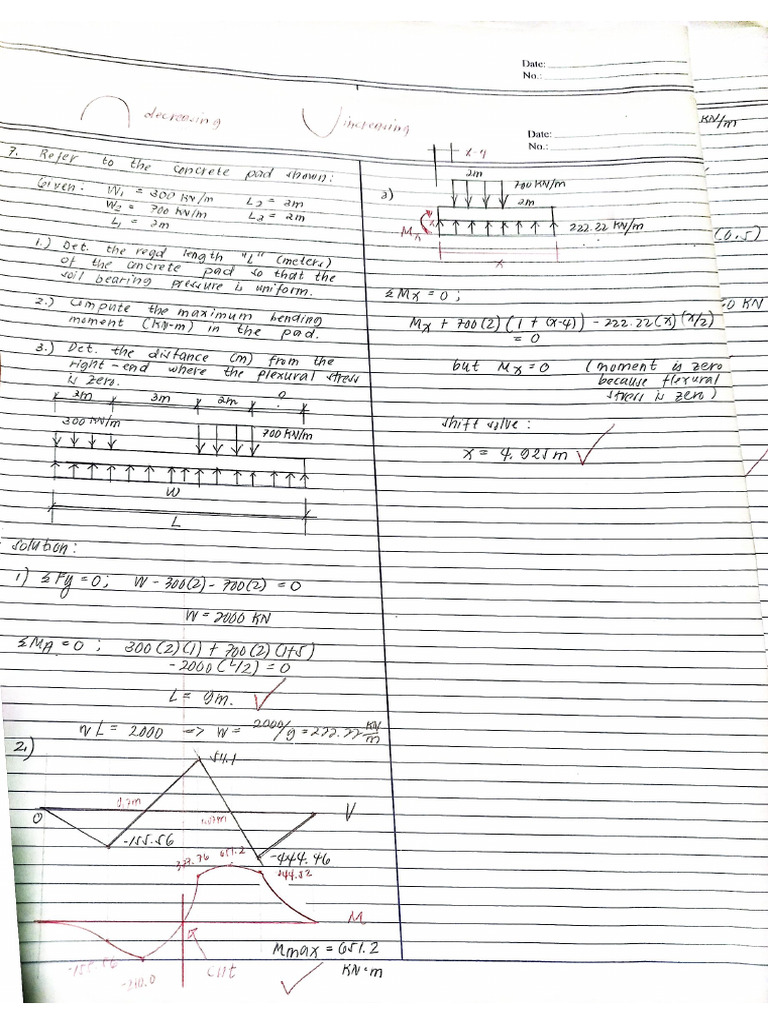 Date:
No.:
decreasing
increasing
Date:
No.:
KN/m
7. Refer to the concrete pad shown:
Given: W1 = 300 KN/m L2 = 3m
W2 = 700 KN/m L3 = 2m
L1 = 2m
1.) Det. the reqd length "L" (meters)
of the concrete pad so that the
soil bearing pressure is uniform.
2.) Compute the maximum bending
moment (KN-m) in the pad.
3.) Det. the distance (m) from the
right-end where the flexural stress
is zero.
2m 3m 2m
300 KN/m
700 KN/m
W
L
Solution:
1) ΣFy = 0; W - 300(2) - 700(2) = 0
W = 2000 KN
ΣMA = 0; 300(2)(1) + 700(2)(1+5)
-2000(L/2) = 0
L = 9m.
wL = 2000 => W = 2000/9 = 222.22 KN/m
2.)
511.1
0.7m
0
V
-155.56
-444.46
651.2
544.52
M
-155.56
-210.0
cut
Mmax = 651.2
KN·m
3)
x-4
2m
700 KN/m
2m
222.22 KN/m
Mx
x
ΣMx = 0;
Mx + 700(2)(1+(x-4)) - 222.22(x)(x/2)
= 0
but Mx = 0 (moment is zero
because flexural
stress is zero)
shift solve:
x = 4.925m
(0.5)
KN